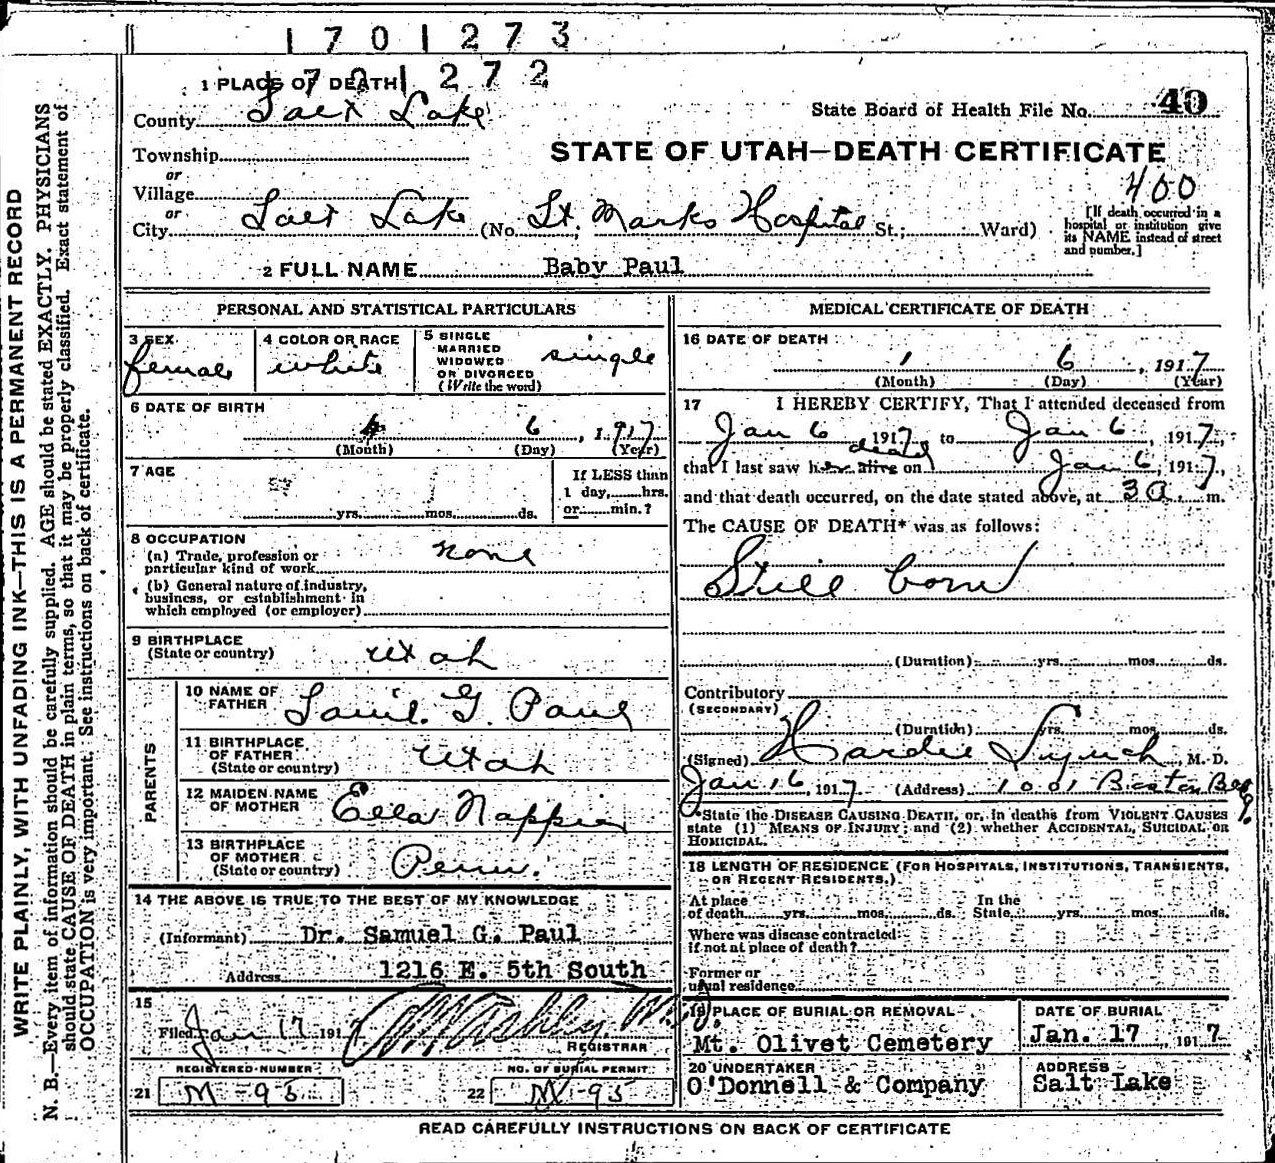 1701273
1701272
1 PLACE OF DEATH
County Salt Lake
State Board of Health File No. 40
Township
or
Village
or
City Salt Lake (No. St. Marks Hospital St.; Ward)
STATE OF UTAH—DEATH CERTIFICATE
400
[If death occurred in a
hospital or institution give
its NAME instead of street
and number.]
2 FULL NAME Baby Paul
PERSONAL AND STATISTICAL PARTICULARS
3 SEX
female
4 COLOR OR RACE
white
5 SINGLE
MARRIED
WIDOWED
OR DIVORCED
(Write the word)
single
6 DATE OF BIRTH
6, 1917
(Month) (Day) (Year)
7 AGE
yrs. mos. ds.
If LESS than
1 day, hrs.
or min.?
8 OCCUPATION
(a) Trade, profession or
particular kind of work none
(b) General nature of industry,
business, or establishment in
which employed (or employer)
9 BIRTHPLACE
(State or country) Utah
PARENTS
10 NAME OF
FATHER Saml. G. Paul
11 BIRTHPLACE
OF FATHER
(State or country) Utah
12 MAIDEN NAME
OF MOTHER Ella Nappier
13 BIRTHPLACE
OF MOTHER
(State or country) Penn.
14 THE ABOVE IS TRUE TO THE BEST OF MY KNOWLEDGE
(Informant) Dr. Samuel G. Paul
Address 1216 E. 5th South
15
Filed Jan 17 1917
REGISTRAR
REGISTERED NUMBER
21 M-95
NO. OF BURIAL PERMIT
22 M-95
MEDICAL CERTIFICATE OF DEATH
16 DATE OF DEATH
1 6, 1917
(Month) (Day) (Year)
17 I HEREBY CERTIFY, That I attended deceased from
Jan 6 1917 to Jan 6, 1917,
dead
that I last saw her alive on Jan 6, 1917,
and that death occurred, on the date stated above, at 3 a. m.
The CAUSE OF DEATH* was as follows:
Still born
(Duration) yrs. mos. ds.
Contributory
(SECONDARY)
(Duration) yrs. mos. ds.
(Signed) Hardie Lynch, M. D.
Jan 16, 1917 (Address) 1001 Boston Bldg.
*State the DISEASE CAUSING DEATH, or, in deaths from VIOLENT CAUSES
state (1) MEANS OF INJURY; and (2) whether ACCIDENTAL, SUICIDAL OR
HOMICIDAL.
18 LENGTH OF RESIDENCE (FOR HOSPITALS, INSTITUTIONS, TRANSIENTS,
OR RECENT RESIDENTS.)
At place
of death yrs. mos. ds.
In the
State yrs. mos. ds.
Where was disease contracted
if not at place of death?
Former or
usual residence
19 PLACE OF BURIAL OR REMOVAL
Mt. Olivet Cemetery
DATE OF BURIAL
Jan. 17, 1917
20 UNDERTAKER
O'Donnell & Company
ADDRESS
Salt Lake
READ CAREFULLY INSTRUCTIONS ON BACK OF CERTIFICATE
WRITE PLAINLY, WITH UNFADING INK—THIS IS A PERMANENT RECORD
N. B.—Every item of information should be carefully supplied. AGE should be stated EXACTLY. PHYSICIANS
should state CAUSE OF DEATH in plain terms, so that it may be properly classified. Exact statement of
OCCUPATION is very important. See instructions on back of certificate.